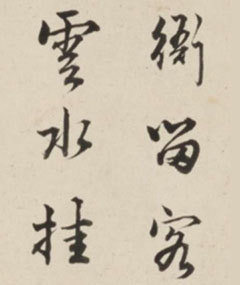 衙留客
雲水挂